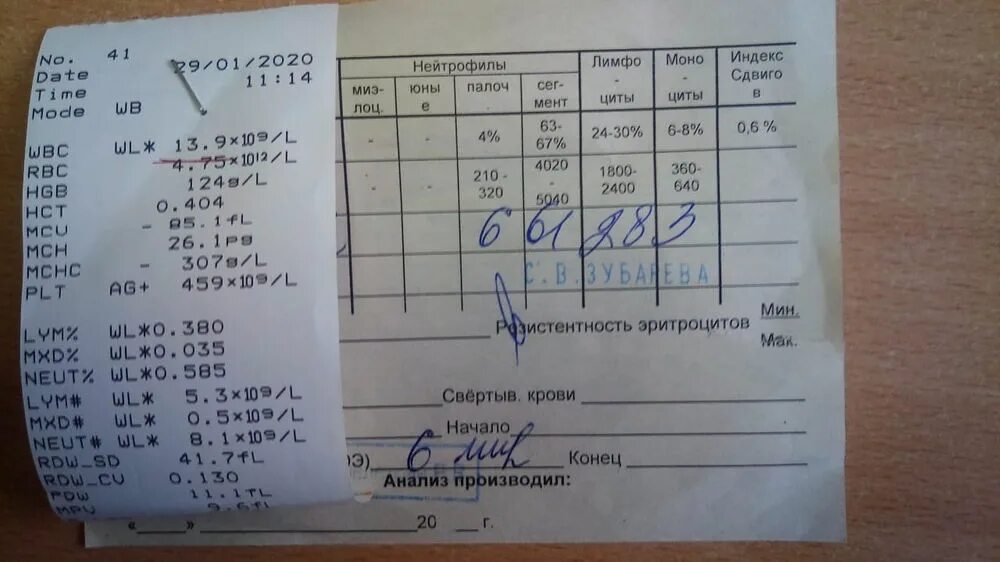 No. 41
Date 29/01/2020
Time 11:14
Mode WB
WBC WL* 13.9×10⁹/L
RBC 4.75×10¹²/L
HGB 124g/L
HCT 0.404
MCV - 85.1fL
MCH 26.1pg
MCHC - 307g/L
PLT AG+ 459×10⁹/L
LYM% WL*0.380
MXD% WL*0.035
NEUT% WL*0.585
LYM# WL* 5.3×10⁹/L
MXD# WL* 0.5×10⁹/L
NEUT# WL* 8.1×10⁹/L
RDW_SD 41.7fL
RDW_CV 0.130
PDW 11.1fL
MPV 9.6fL
Нейтрофилы Лимфо-циты Моно-циты Индекс Сдвигов
миэ-лоц. юные палоч. сег-мент
- - 4% 63-67% 24-30% 6-8% 0,6 %
- - 210-320 4020-5040 1800-2400 360-640
6 61 28 3
С.В.ЗУБАРЕВА
Розистентность эритроцитов Мин.
Мак.
Свёртыв. крови
Начало
ОЭ) 6 мин Конец
Анализ производил:
«___» 20 __ г.